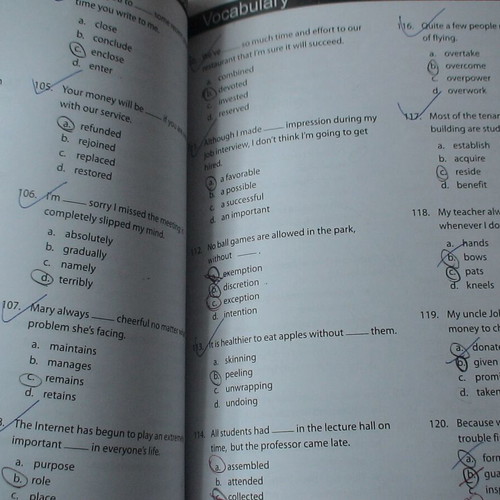 time you write to me.
a. close
b. conclude
c. enclose
d. enter
105. Your money will be ____ if you
with our service.
a. refunded
b. rejoined
c. replaced
d. restored
106. I'm ____ sorry I missed the meeting
completely slipped my mind.
a. absolutely
b. gradually
c. namely
d. terribly
107. Mary always ____ cheerful no matter
problem she's facing.
a. maintains
b. manages
c. remains
d. retains
The Internet has begun to play an extreme
important ____ in everyone's life.
a. purpose
b. role
c. place
Vocabulary
____ so much time and effort to our
restaurant that I'm sure it will succeed.
a. combined
b. devoted
c. invested
d. reserved
Although I made ____ impression during my
job interview, I don't think I'm going to get
hired.
a. a favorable
b. a possible
c. a successful
d. an important
112. No ball games are allowed in the park,
without ____.
a. exemption
b. discretion
c. exception
d. intention
113. It is healthier to eat apples without ____ them.
a. skinning
b. peeling
c. unwrapping
d. undoing
114. All students had ____ in the lecture hall on
time, but the professor came late.
a. assembled
b. attended
c. collected
116. Quite a few people
of flying.
a. overtake
b. overcome
c. overpower
d. overwork
117. Most of the tenan
building are stud
a. establish
b. acquire
c. reside
d. benefit
118. My teacher alw
whenever I do
a. hands
b. bows
c. pats
d. kneels
119. My uncle Jo
money to ch
a. donat
b. given
c. prom
d. taken
120. Because w
trouble fi
a. for
b. gua
c. ins